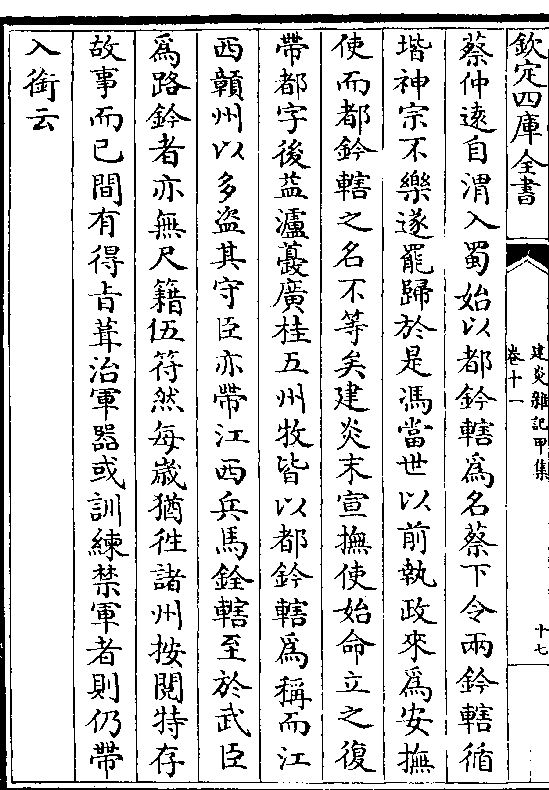 欽定四庫全書
建炎雜記甲集
卷十一
十七
蔡仲遠自渭入蜀始以都鈐轄爲名蔡下令兩鈐轄循
堦神宗不樂遂罷歸於是馮當世以前執政來爲安撫
使而都鈐轄之名不等矣建炎末宣撫使始命立之復
帶都字後益瀘䕫廣桂五州牧皆以都鈐轄爲稱而江
西贛州以多盗其守臣亦帶江西兵馬銓轄至於武臣
爲路鈐者亦無尺籍伍符然每歲猶徃諸州按閱特存
故事而已間有得㫖葺治軍器或訓練禁軍者則仍帶
入銜云